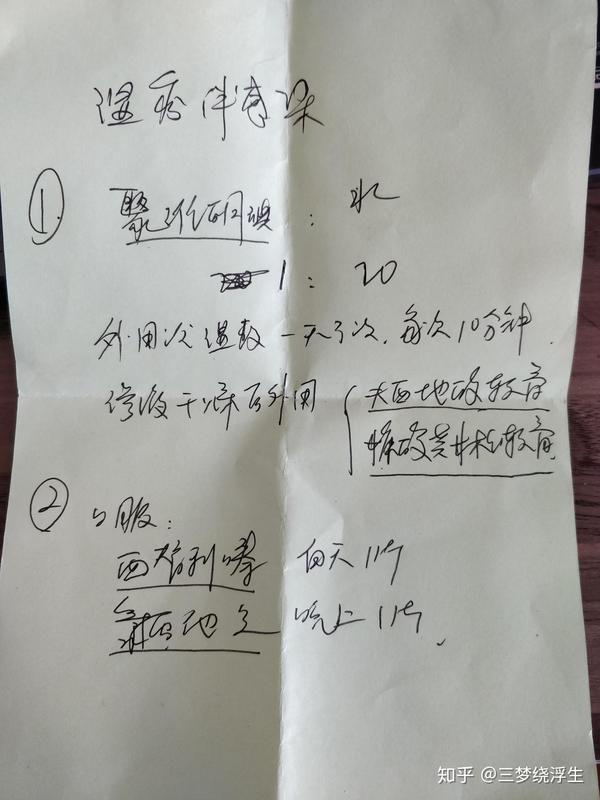 湿疹伴感染
① 聚维酮碘：水
1：20
外用冷湿敷 一天3次，每次10分钟．
待皮干燥后外用 { 夫西地酸软膏
糠酸莫米松软膏
② 口服：
西替利嗪 白天1片
氯雷他定 晚上1片．
知乎 @三梦绕浮生